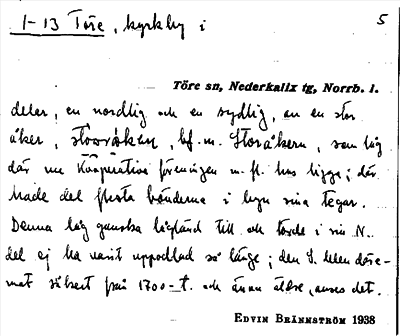 1-13 Töre, kyrkby i
5
Töre sn, Nederkalix tg, Norrb. l.
delar, en nordlig och en sydlig, av en stor
åker, storåkern, bf. m. Storåkern, som låg
där nu Kooperativa föreningen m. fl. hus ligga; där
hade de flesta bönderna i byn sina tegar.
Denna låg ganska lågländ till och torde i sin N.
del ej ha varit uppodlad så länge; den S. delen däre-
mot säkert från 1700-t. och ännu äldre, anses det.
EDVIN BRÄNNSTRÖM 1938